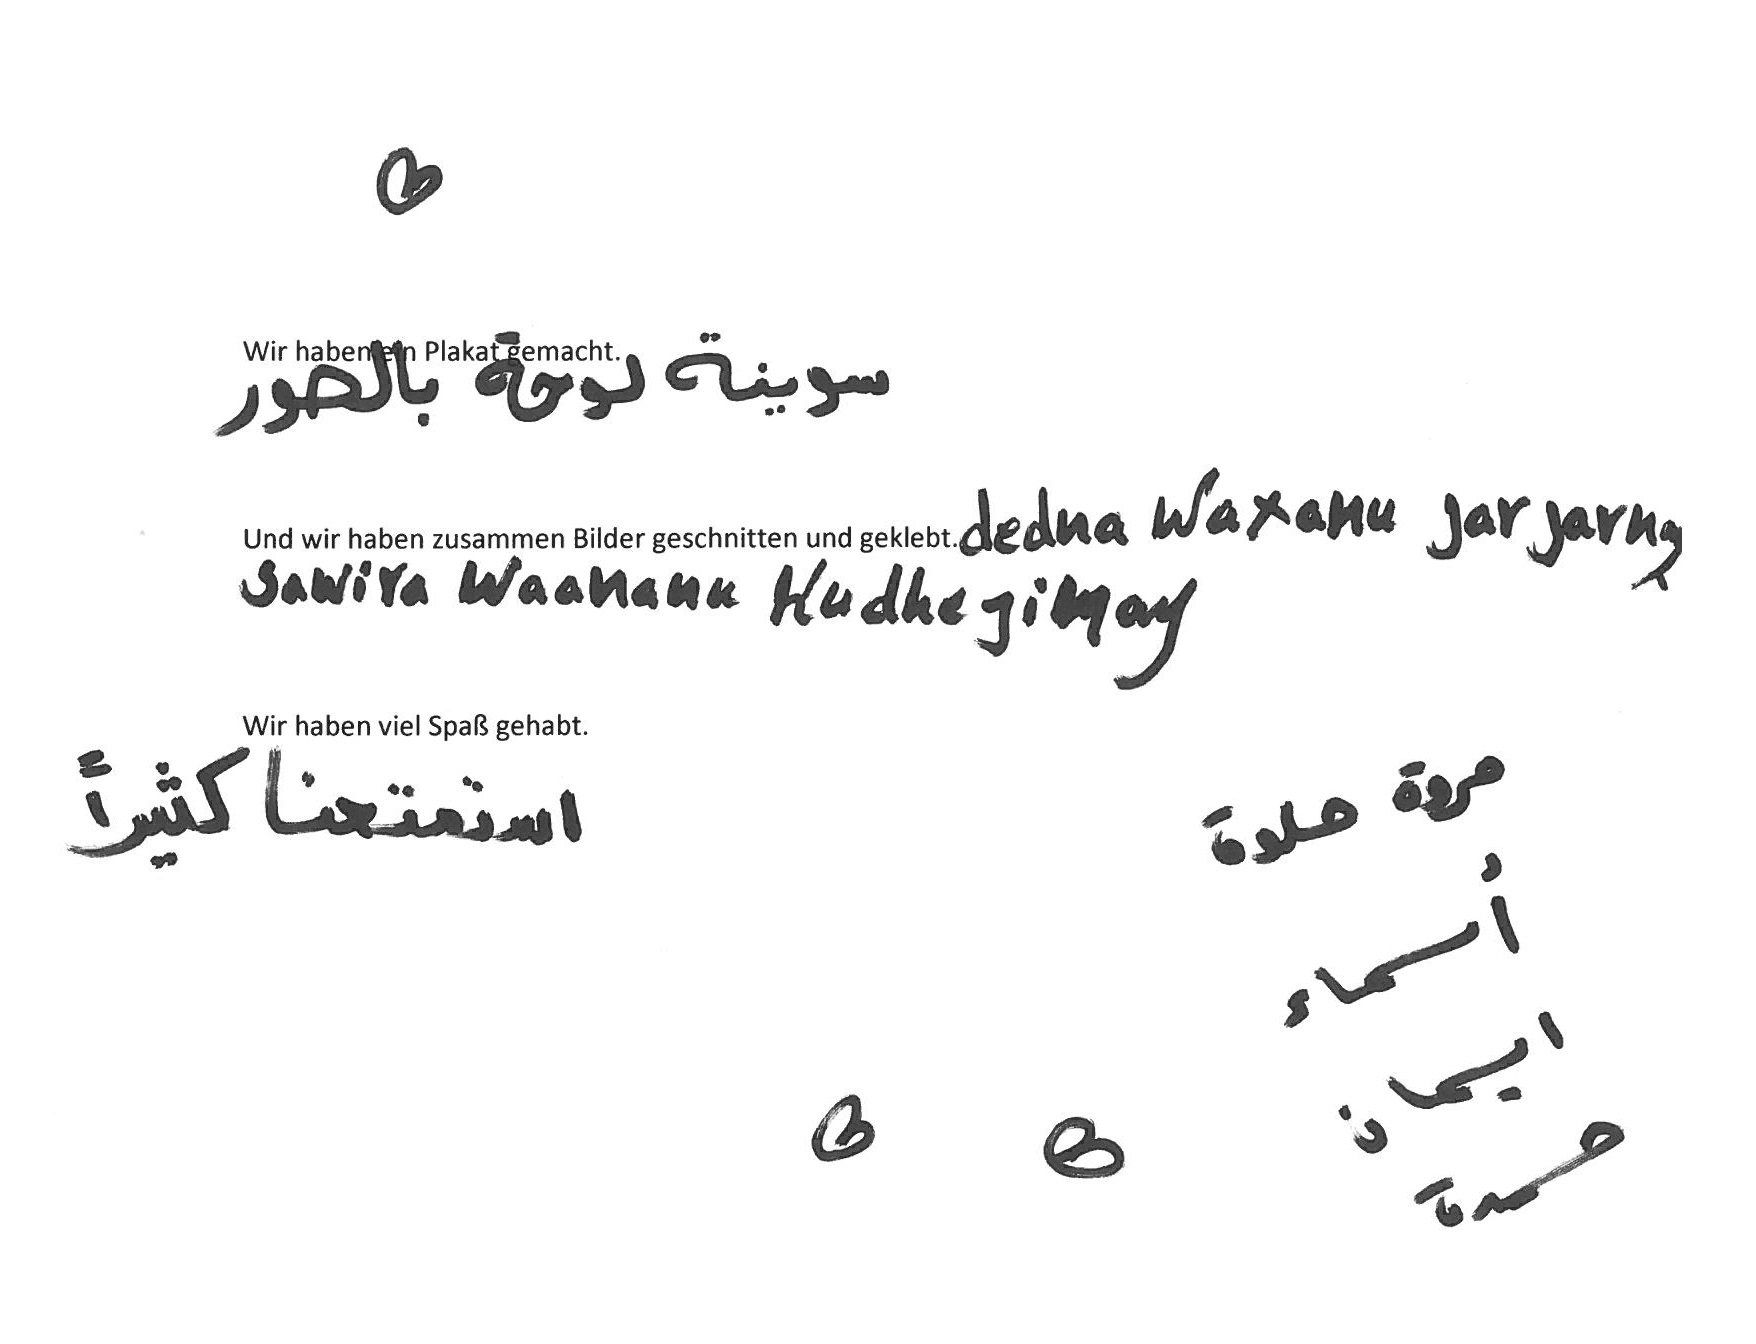 Wir haben ein Plakat gemacht.
سوينة لوحة بالصور
Und wir haben zusammen Bilder geschnitten und geklebt. dedna Waxanu jar jarng
Sawira Waanana Kudhegimay
Wir haben viel Spaß gehabt.
استمتعنا كثيراً
مروة حلوة
أسماء
ايمان